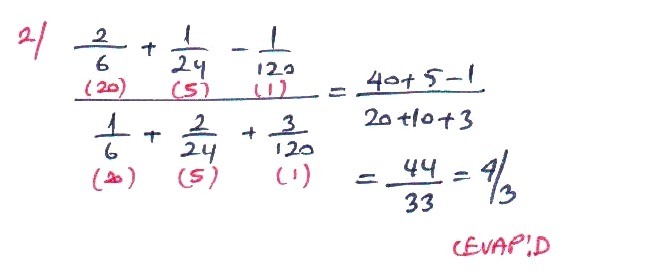 2/ 2/6 + 1/24 - 1/120
(20) (5) (1)
1/6 + 2/24 + 3/120
(20) (5) (1)
= 40+5-1 / 20+10+3
= 44/33 = 4/3
CEVAP:D